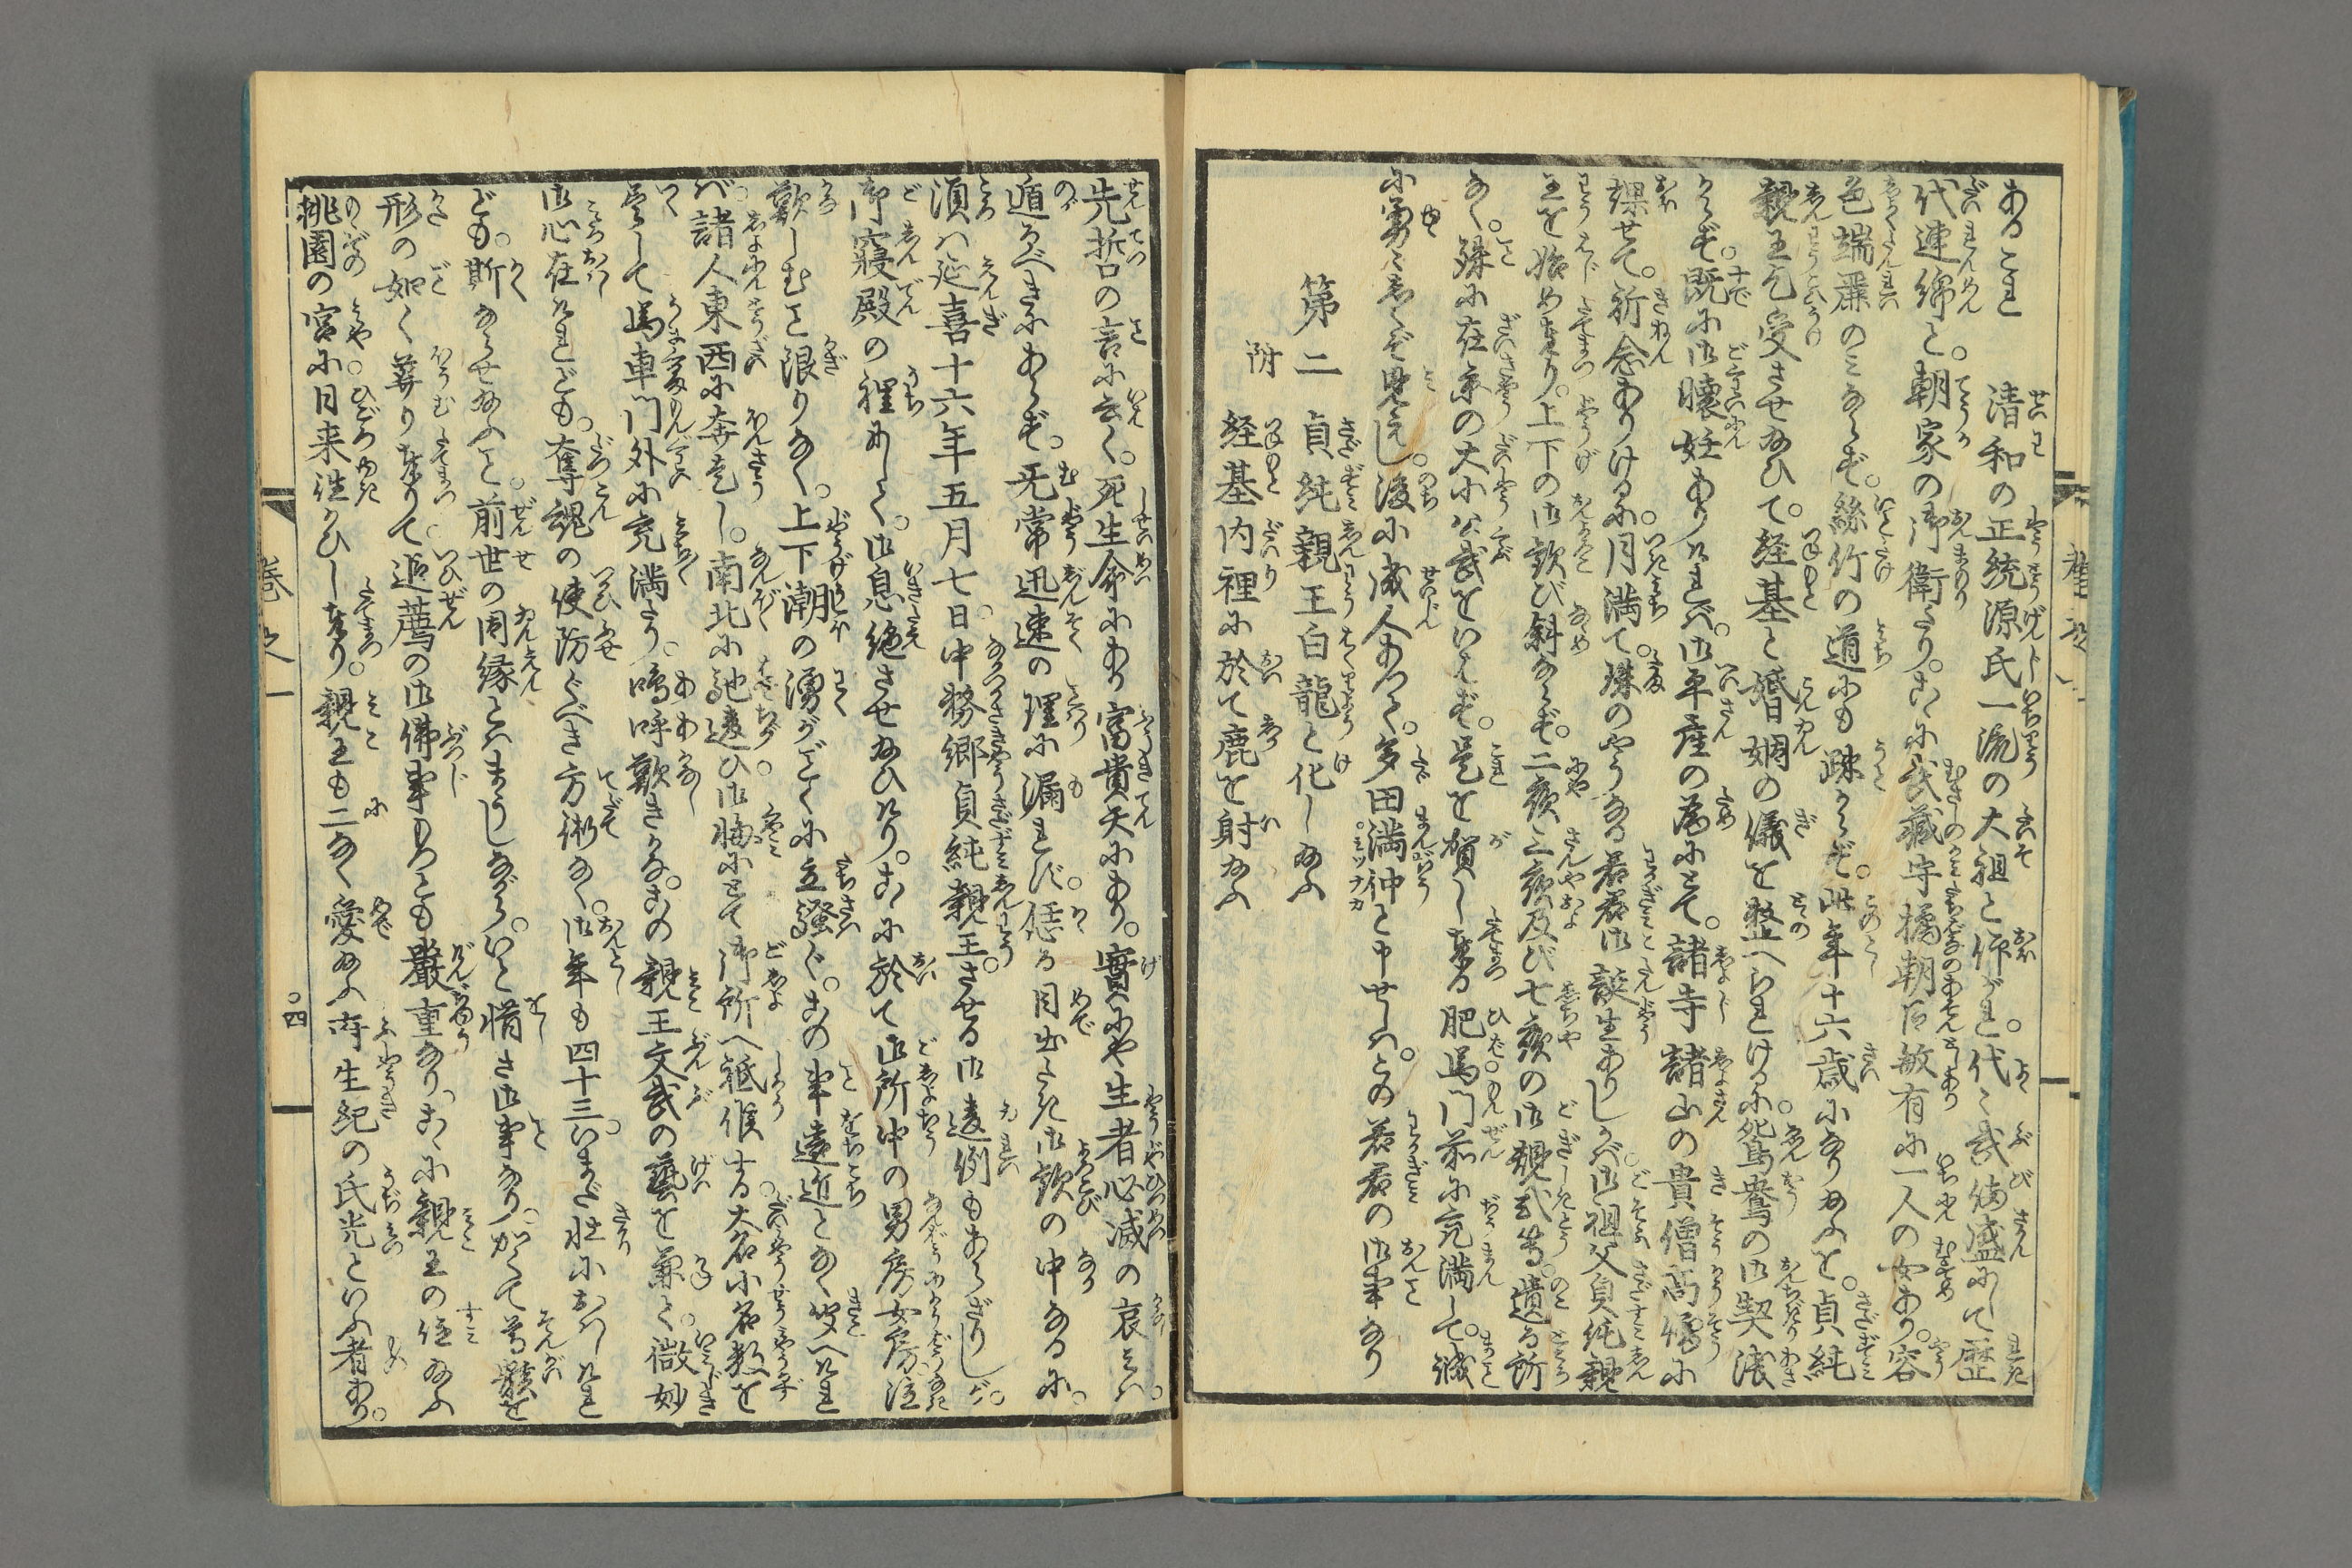 あるこれ 清和の正統源氏一流の大祖と仰がれ。代〻武備盛にして歴
代連綿と。朝家の御衛たり。こゝに武蔵守橘朝臣敏有に一人の女あり。容
色端麗のみならず。絲竹の道にも疎からず。此年十六歳になり給ふを。貞純
親王乞受させ給ひて。経基と婚姻の儀を整へられけるに。鴛鴦の御契浅
からず。既に御懐妊ありければ。御平産の為にとて。諸寺諸山の貴僧高僧に
課せて。祈念ありけるに。月満て。珠のやうなる若君御誕生ありしかば。御祖父貞純親
王を始め奉り。上下の御歓び斜ならず。二夜三夜及び七夜の御規式等。遺る所
なく。殊に在京の大小公武をいはず。是を賀し奉る肥馬門前に充満して。誠
に勇〻しくぞ見えし。後に成人あつて。多田満仲と申せしは。この若君の御事なり
第二 貞純親王白龍と化し給ふ
附 経基内裡に於て鹿を射給ふ
先哲の言に云く。死生命にあり富貴天にあり。実にや生者必滅の哀みは。
遁るべきにあらず。无常迅速の理に漏れず。恁る目出たき御歓の中なるに。
頃は延喜十六年五月七日。中務郷貞純親王。させる御違例もあらざりしが。
御寝殿の裡にして。御息絶させ給ひけり。こゝに於て御所中の男房女房。泣
歎しむこと限りなく。上下潮の湧がごとくに立騒ぐ。この事遠近となく聞へけれ
ば。諸人東西に奔走し。南北に馳違ひ。御悔にとて御所へ祗候する大名小名数を
尽して。馬車門外に充満たり。嗚呼歎きかな。この親王文武の藝を兼と。微妙
御心在けれども。奪魂の使防ぐべき方術なく。御年も四十三。いまだ壮におはしけれ
ども。斯ならせ給ふこと。前世の因縁とはまうしながら。いと惜き御事なり。かくて尊骸を
形の如く葬り奉りて。追薦の御佛事もつとも厳重なり。こゝに親王の住給ふ
桃園の宮に日来往かひし奉り。親王も二なく愛給ふ壬生紀の氏光といふ者あり。
巻之一
○四